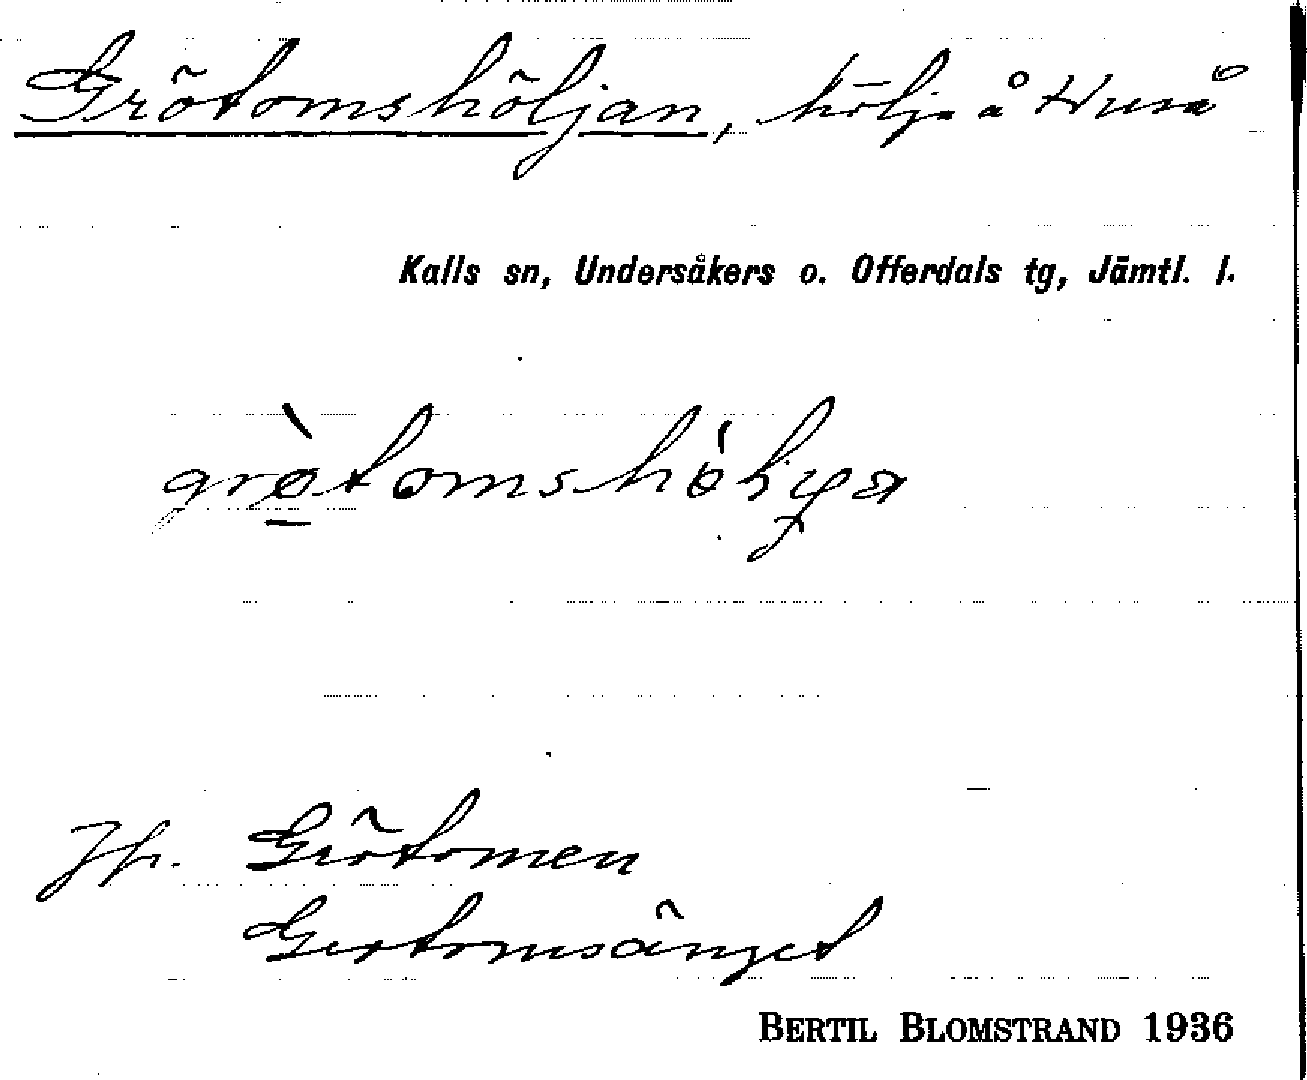 Grötomshöljan, hölja å Huså
Kalls sn, Undersåkers o. Offerdals tg, Jämtl. l.
grø̀tomshø̍ljya
Jfr. Grötomen
Grötomsänget
BERTIL BLOMSTRAND 1936